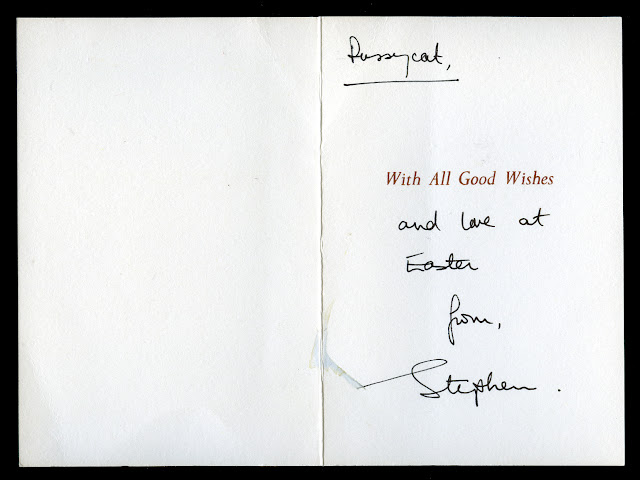 Pussycat,
With All Good Wishes
and love at
Easter
from,
Stephen.